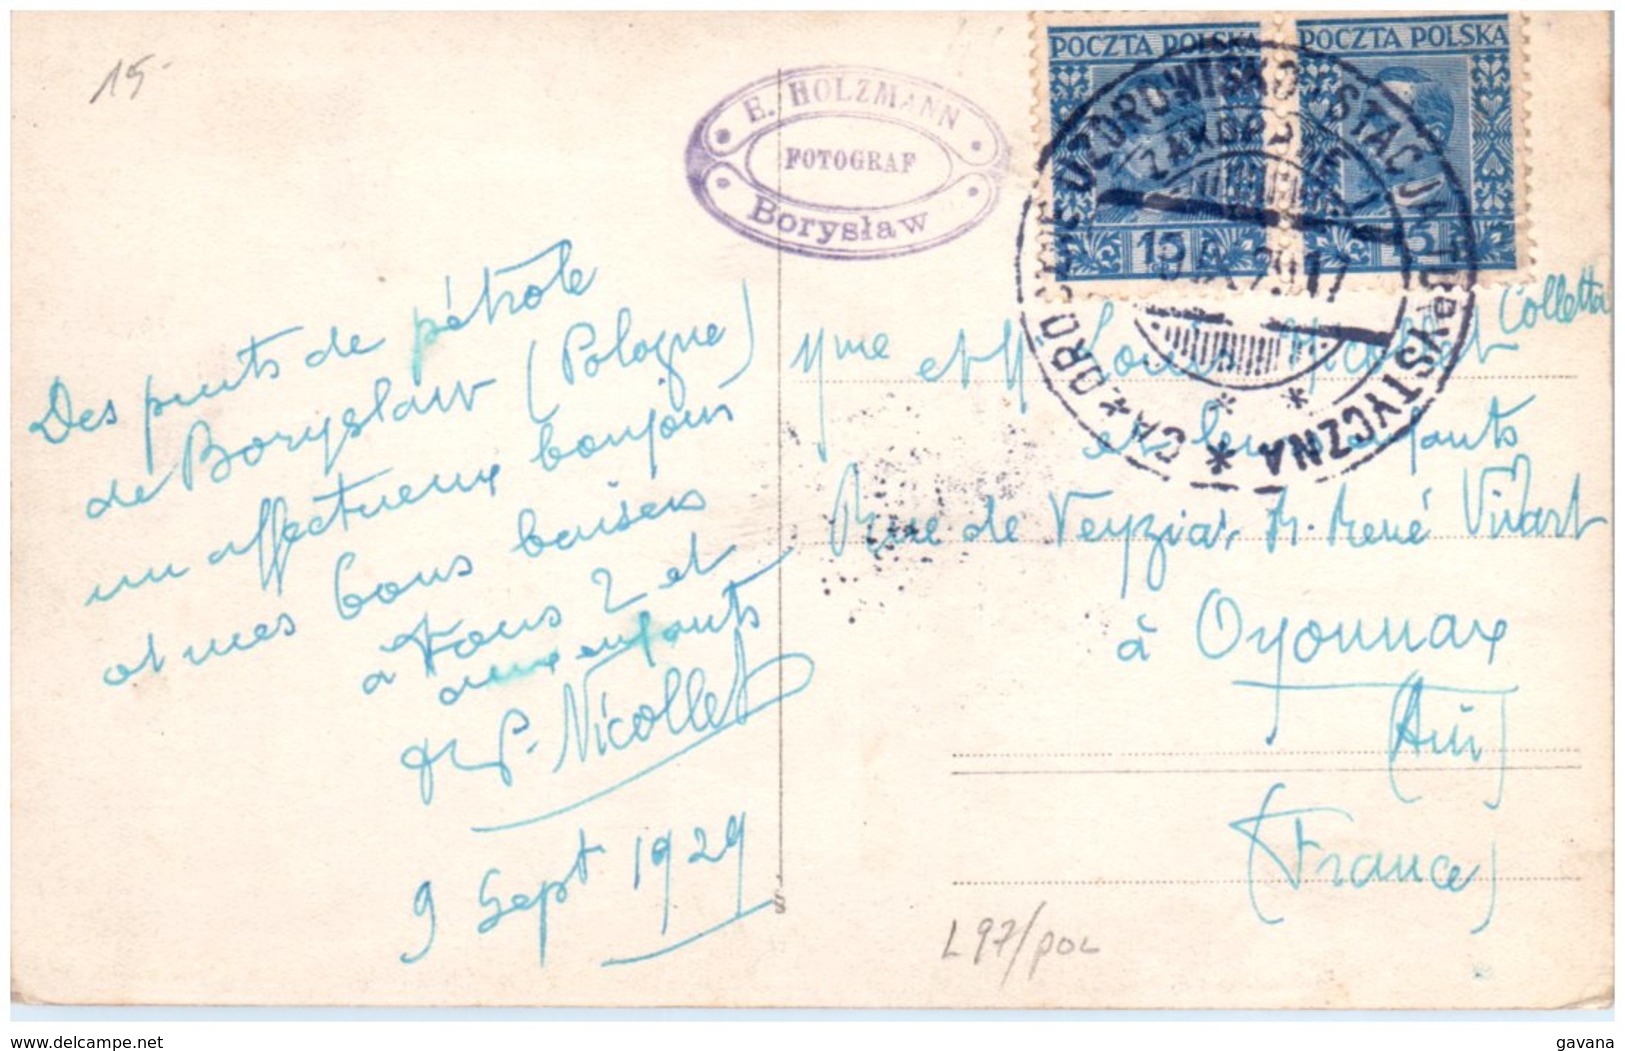 15-
E. HOLZMANN
FOTOGRAF
Borysław
POCZTA POLSKA POCZTA POLSKA
UZDROWISKO I STACJA TURYSTYCZNA * CAŁOROCZNE
ZAKOPANE 1
15
Des puits de pétrole
de Boryslaw (Pologne)
un affectueux bonjour
et mes bons baisers
à Vous 2 et
aux enfants
P. Nicollet
9 Sept 1929
Mme et M Louis Nicollet Colletta
et leurs enfants
Rue de Veyziat M. René Vivart
à Oyonnax
(Ain)
(France)
L97/POL
delcampe.net
gavana